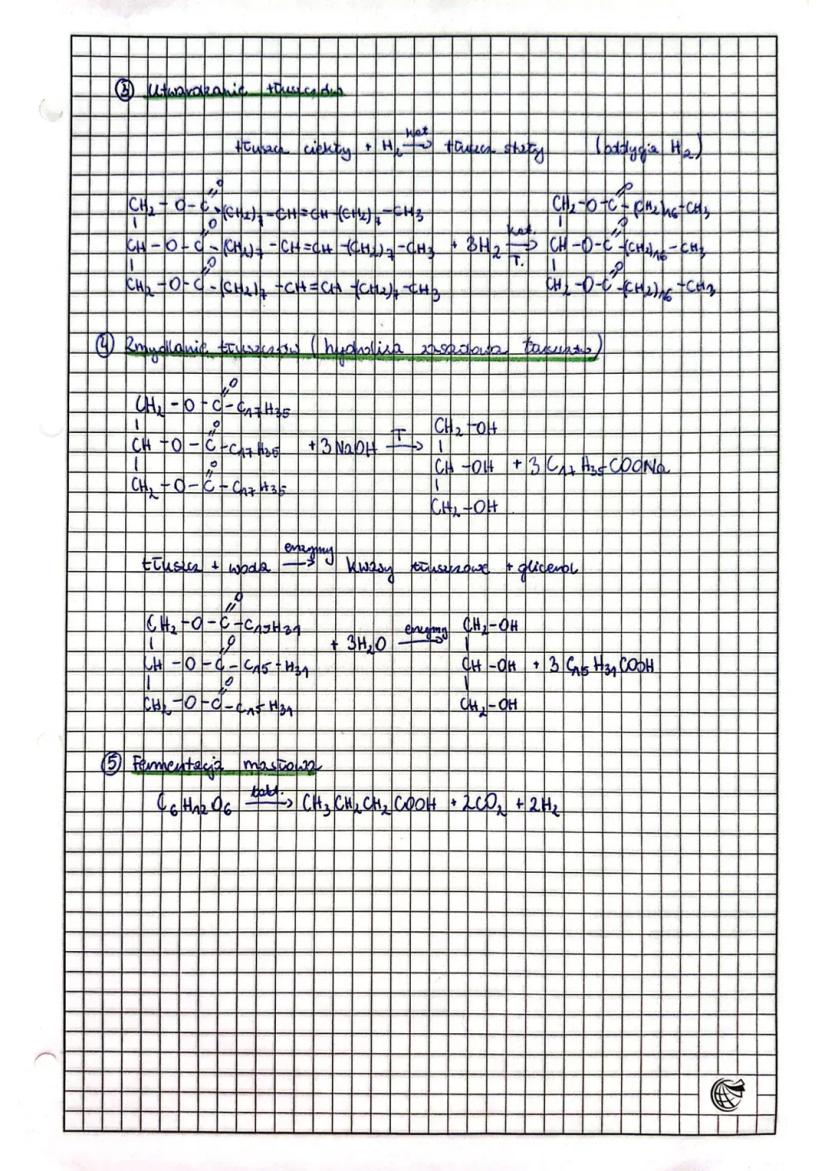 ③ Utwardzanie tłuszczów
tłuszcz ciekły + H₂ —kat→ tłuszcz stały (addycja H₂)
CH₂-O-C(=O)-(CH₂)₇-CH=CH-(CH₂)₇-CH₃
CH-O-C(=O)-(CH₂)₇-CH=CH-(CH₂)₇-CH₃ + 3H₂ —kat. T.→
CH₂-O-C(=O)-(CH₂)₇-CH=CH-(CH₂)₇-CH₃
CH₂-O-C(=O)-(CH₂)₁₆-CH₃
CH-O-C(=O)-(CH₂)₁₆-CH₃
CH₂-O-C(=O)-(CH₂)₁₆-CH₃
④ Zmydlanie tłuszczów (hydroliza zasadowa)
CH₂-O-C(=O)-C₁₇H₃₅
CH-O-C(=O)-C₁₇H₃₅ + 3NaOH —T→
CH₂-O-C(=O)-C₁₇H₃₅
CH₂-OH
CH-OH + 3C₁₇H₃₅COONa
CH₂-OH
tłuszcz + woda —enzymy→ kwasy tłuszczowe + glicerol
CH₂-O-C(=O)-C₁₅H₃₁
CH-O-C(=O)-C₁₅-H₃₁ + 3H₂O —enzymy→
CH₂-O-C(=O)-C₁₅H₃₁
CH₂-OH
CH-OH + 3C₁₅H₃₁COOH
CH₂-OH
⑤ Fermentacja masłowa
C₆H₁₂O₆ —bakt.→ CH₃CH₂CH₂COOH + 2CO₂ + 2H₂